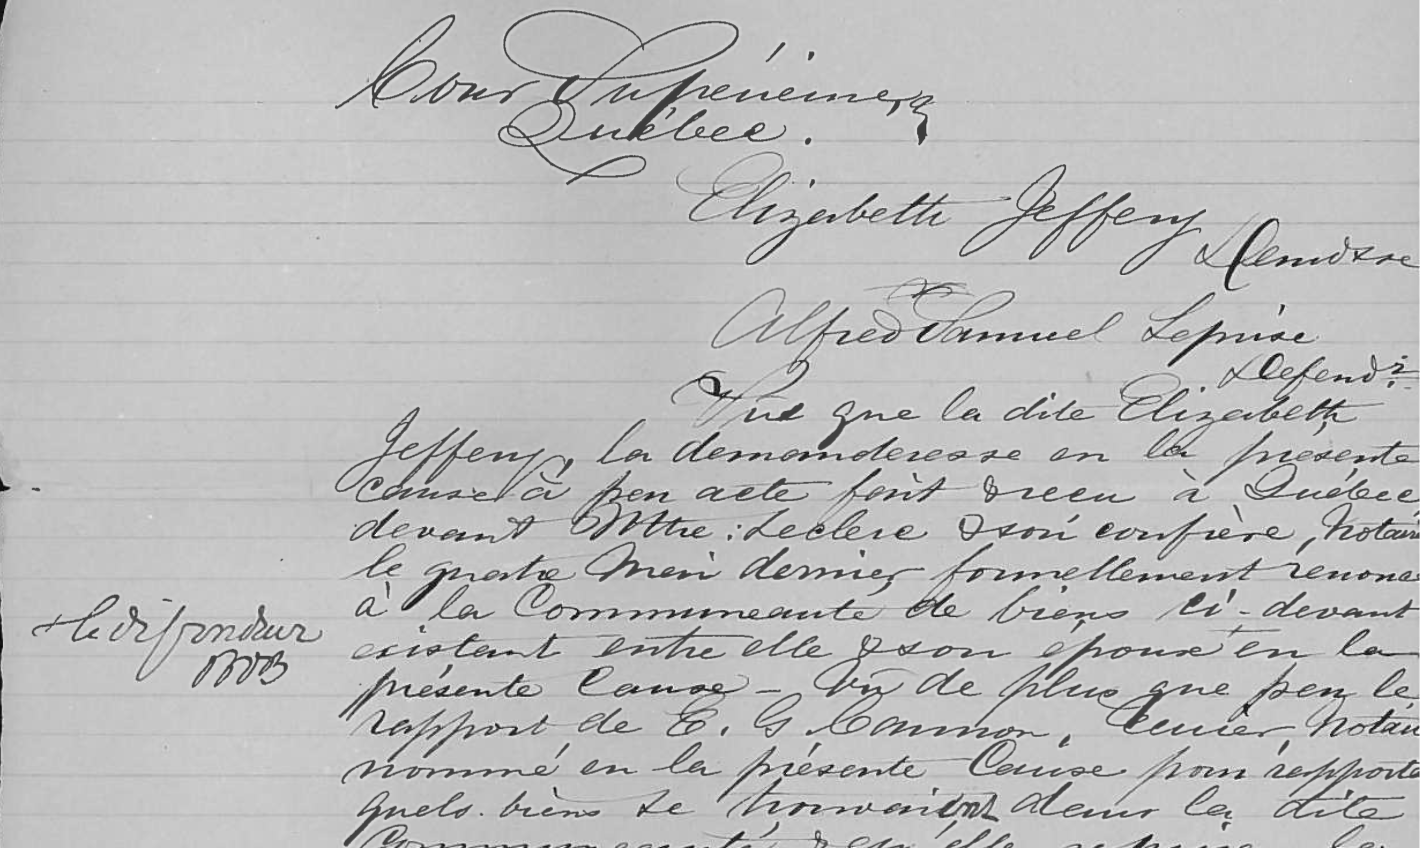 Cour Supérieure,
Québec.
Elizabeth Jeffery
Demdsse
Alfred Samuel Leprise
Defendr.
Vue que la dite Elizabeth
Jeffery, la demanderesse en la présente
cause à par acte fait & recu à Québec
devant Mtre: Leclerc & son confrère, Notair
le quatre Mai dernier formellement renonc
à la Communeauté de biens ci-devant
existant entre elle & son époux en la
+ le défendeur
présente Cause - Vu de plus que par le
rapport de E. G. Cannon, Ecuier, Notair
nommé en la présente Cause pour rapporte
quels biens se trouvaient dans la dite
Communeauté & elle la